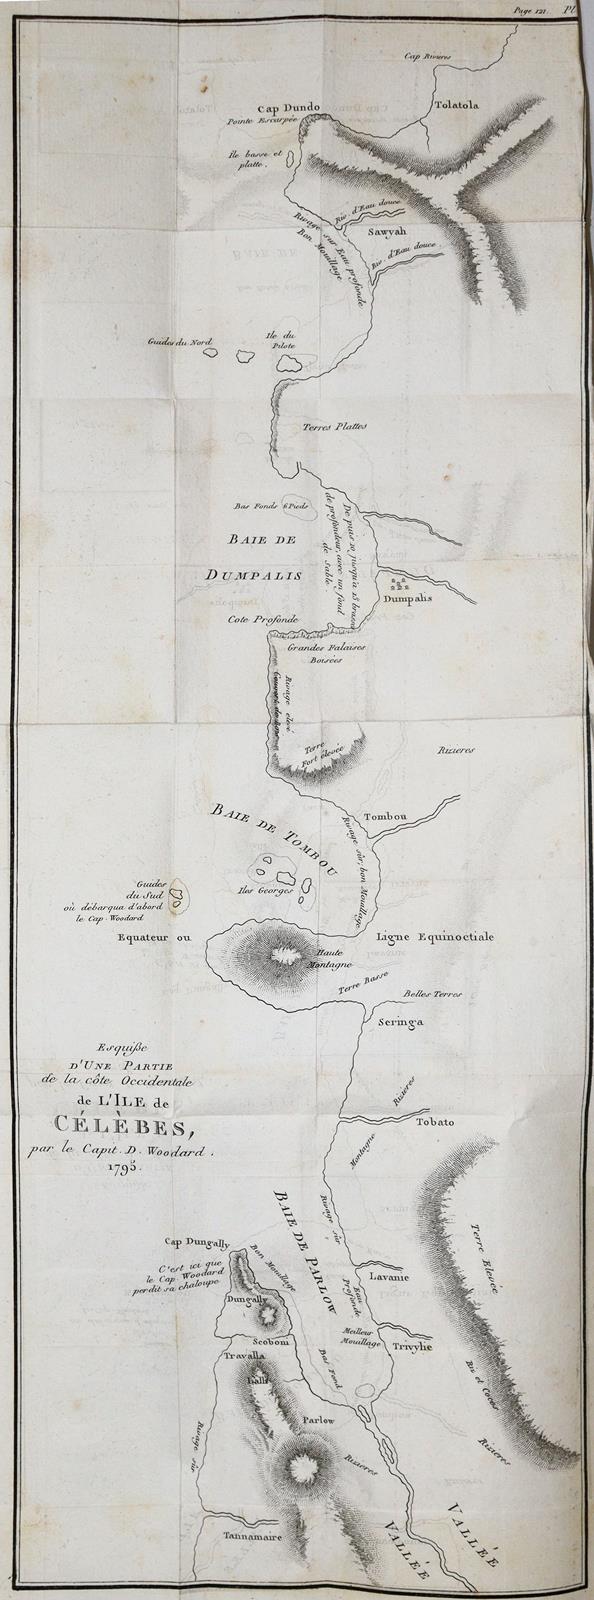 Page 121. Pl
Cap Rivieres
Cap Dundo
Tolatola
Pointe Escarpée
Ile basse et
platte.
Riv. d'Eau douce
Sawyah
Rivage sûr Eau profonde
Bon Mouillage
Riv. d'Eau douce
Guides du Nord
Ile du
Pilote
Terres Plattes
Bas Fonds 6 Pieds
De puis 10 jusqu'a 15 brasses
de profondeur, avec un fond
de Sable.
BAIE DE
DUMPALIS
Dumpalis
Cote Profonde
Grandes Falaises
Boisées
Rivage elevé
Terre
Fort élevée
Rizieres
BAIE DE TOMBOU
Tombou
Rivage sûr, bon Mouillage
Iles Georges
Guides
du Sud
où débarqua d'abord
le Cap. Woodard
Equateur ou
Ligne Equinoctiale
Haute
Montagne
Terre Basse
Belles Terres
Seringa
Esquiße
D'UNE PARTIE
de la côte Occidentale
de L'ILE de
CÉLÈBES,
par le Capit. D. Woodard.
1795.
Rizieres
Tobato
Montagne
Rivage sûr
BAIE DE PARLOW
Cap Dungally
Bon Mouillage
C'est ici que
le Cap. Woodard
perdit sa chaloupe
Lavanie
Eau
Profonde
Terre Elevée
Dungally
Meilleur
Mouillage
Scoboni
Trivyhe
Travalla
Bas Fond
Lalli
Riz et Cocos
Parlow
Rivage sûr
Rizieres
Rizieres
Tannamaire
VALLÉE
VALLÉE